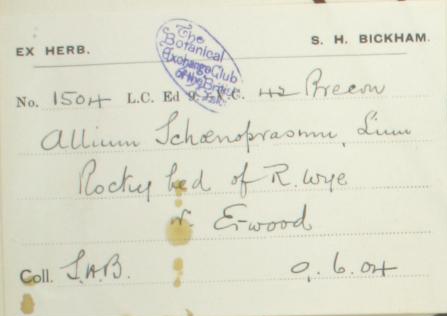 The
Botanical
Exchange Club
of the British
Isles.
EX HERB. S. H. BICKHAM.
No. 1504 L.C. Ed 9. V.C. 42 Brecon
Allium Schœnoprasum, Linn
Rocky bed of R. Wye
nr. Erwood
Coll. S.H.B. 9. 6. 04